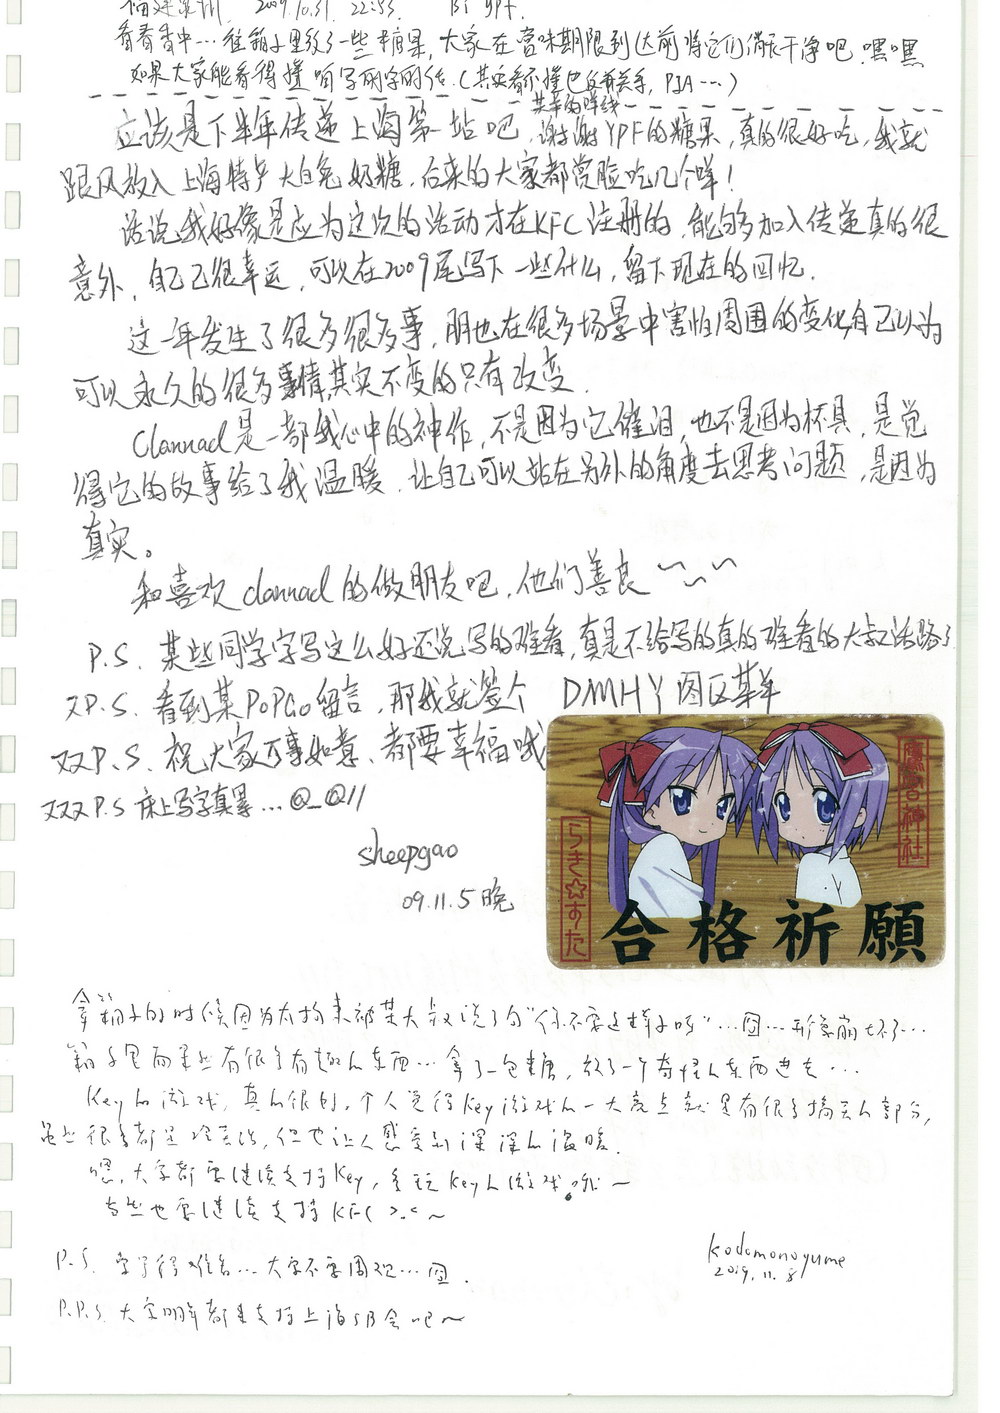 福建泉州 2009.10.31. 22:55. By ypf.
香香香中…往箱子里放了一些糖果,大家在赏味期限到达前将它们消灭干净吧.嘿嘿
如果大家能看得懂咱写的字的话.(其实看不懂也没有关系,PIA…)
共苹的咩线
应该是下半年传递上海第一站吧,谢谢YPF的糖果,真的很好吃,我就
跟风放入上海特产大白兔奶糖,后来的大家都赏脸吃几个咩!
话说我好像是应为这次的活动才在KFC注册的,能够加入传递真的很
意外,自己很幸运,可以在2009尾写下一些什么,留下现在的回忆.
这一年发生了很多很多事,朋也在很多场景中害怕周围的变化自己以为
可以永久的很多事情,其实不变的只有改变.
Clannad是一部我心中的神作,不是因为它催泪,也不是因为杯具,是觉
得它的故事给了我温暖.让自己可以站在另外的角度去思考问题,是因为
真实。
和喜欢clannad的做朋友吧,他们善良~~~
P.S. 某些同学字写这么好还说写的难看,真是不给写的真的难看的大叔活路了
又P.S. 看到某PoPGo留言,那我就签个 DMHY图区某羊
双P.S. 祝大家万事如意、都要幸福哦
双又P.S 床上写字真累…@_@!!
sheepgao
09.11.5晚
鷹宮神社
らき☆すた
合格祈願
拿箱子的时候因为太拘束被某大叔说了句"你不要这样子呀"…囧…形象崩坏了…
箱子里面果然有很多有趣的东西…拿了一包糖,放了一个奇怪的东西进去…
Key的游戏,真的很好,个人觉得Key游戏的一大亮点就是有很多搞笑的部分,
虽然很多都是冷笑话,但也让人感受到深深的温暖.
嗯,大家都要继续支持Key,多玩Key的游戏呢~
当然也要继续支持KFC >.<~
P.S. 字写得难看…大家不要围观…囧.
P.P.S. 大家明年都来支持上海SB会吧~
kodomonoyume
2009.11.8